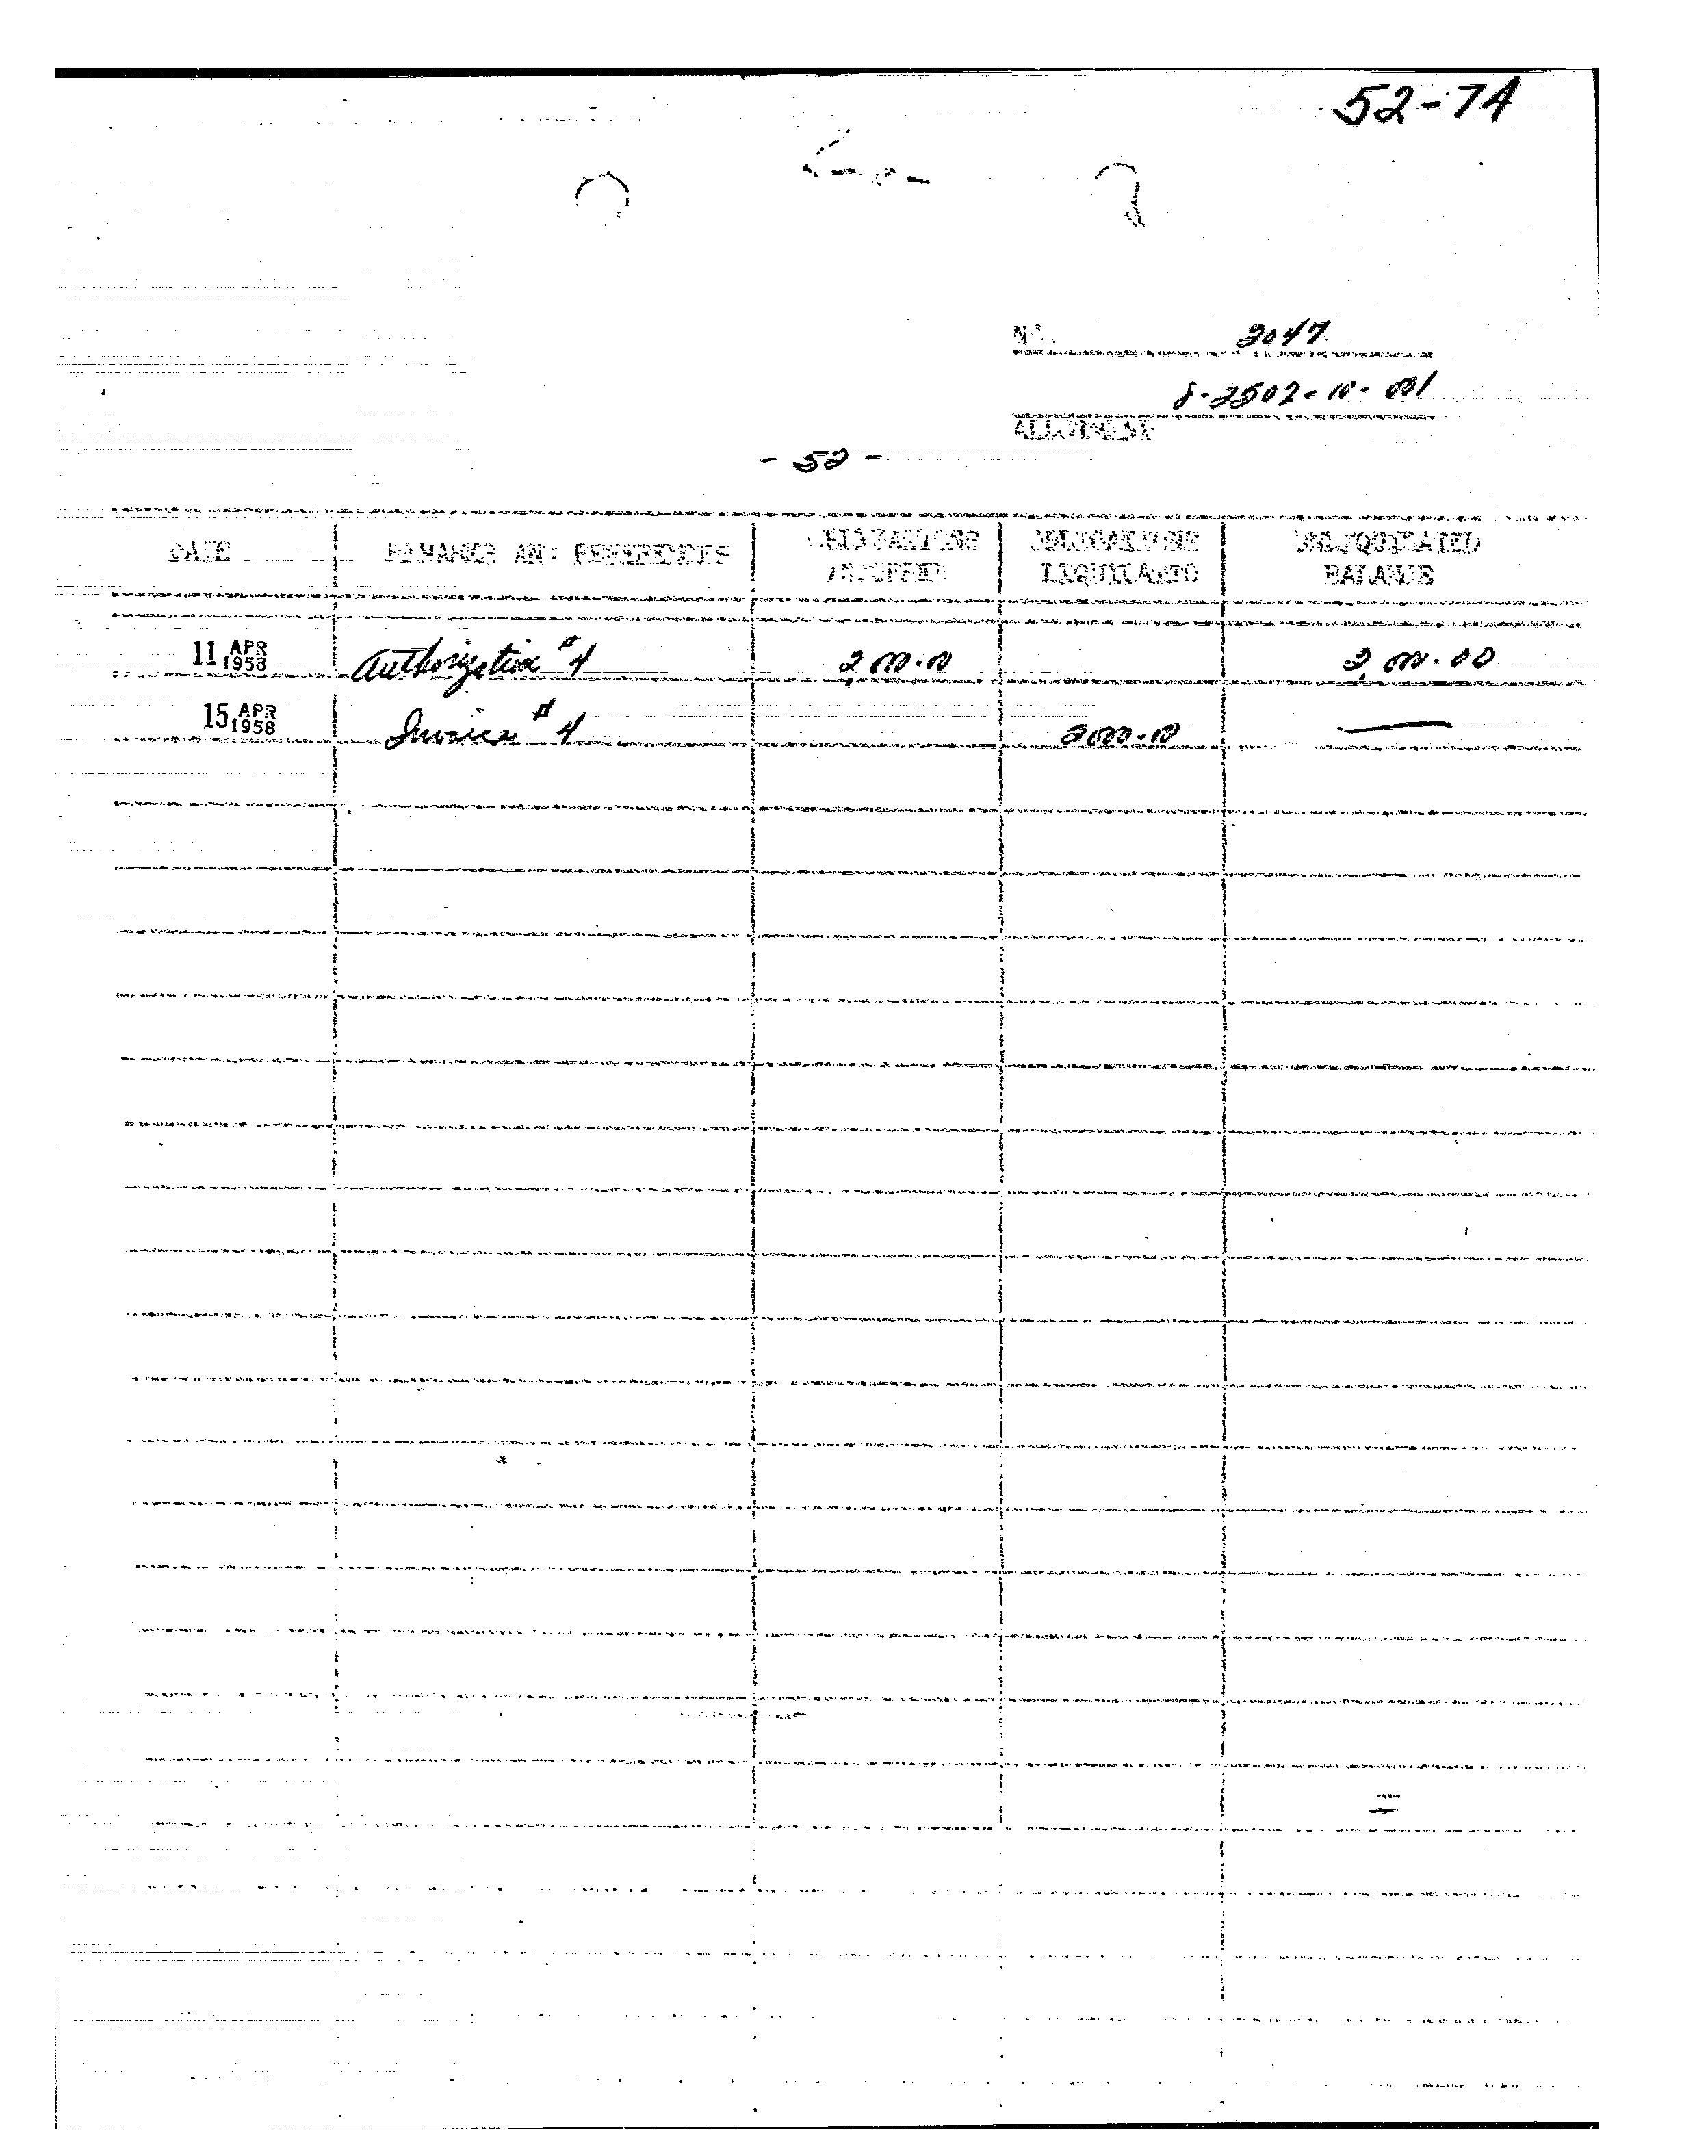 52-74
No. 2047
8-2502-10-001
ALLOTMENT
- 52 -
DATE REMARKS AND REFERENCES OBLIGATIONS INCURRED OBLIGATIONS LIQUIDATED UNLIQUIDATED BALANCE
11 APR 1958 Authorization #4 2,000.00 2,000.00
15 APR 1958 Invoice #4 2000.00 —